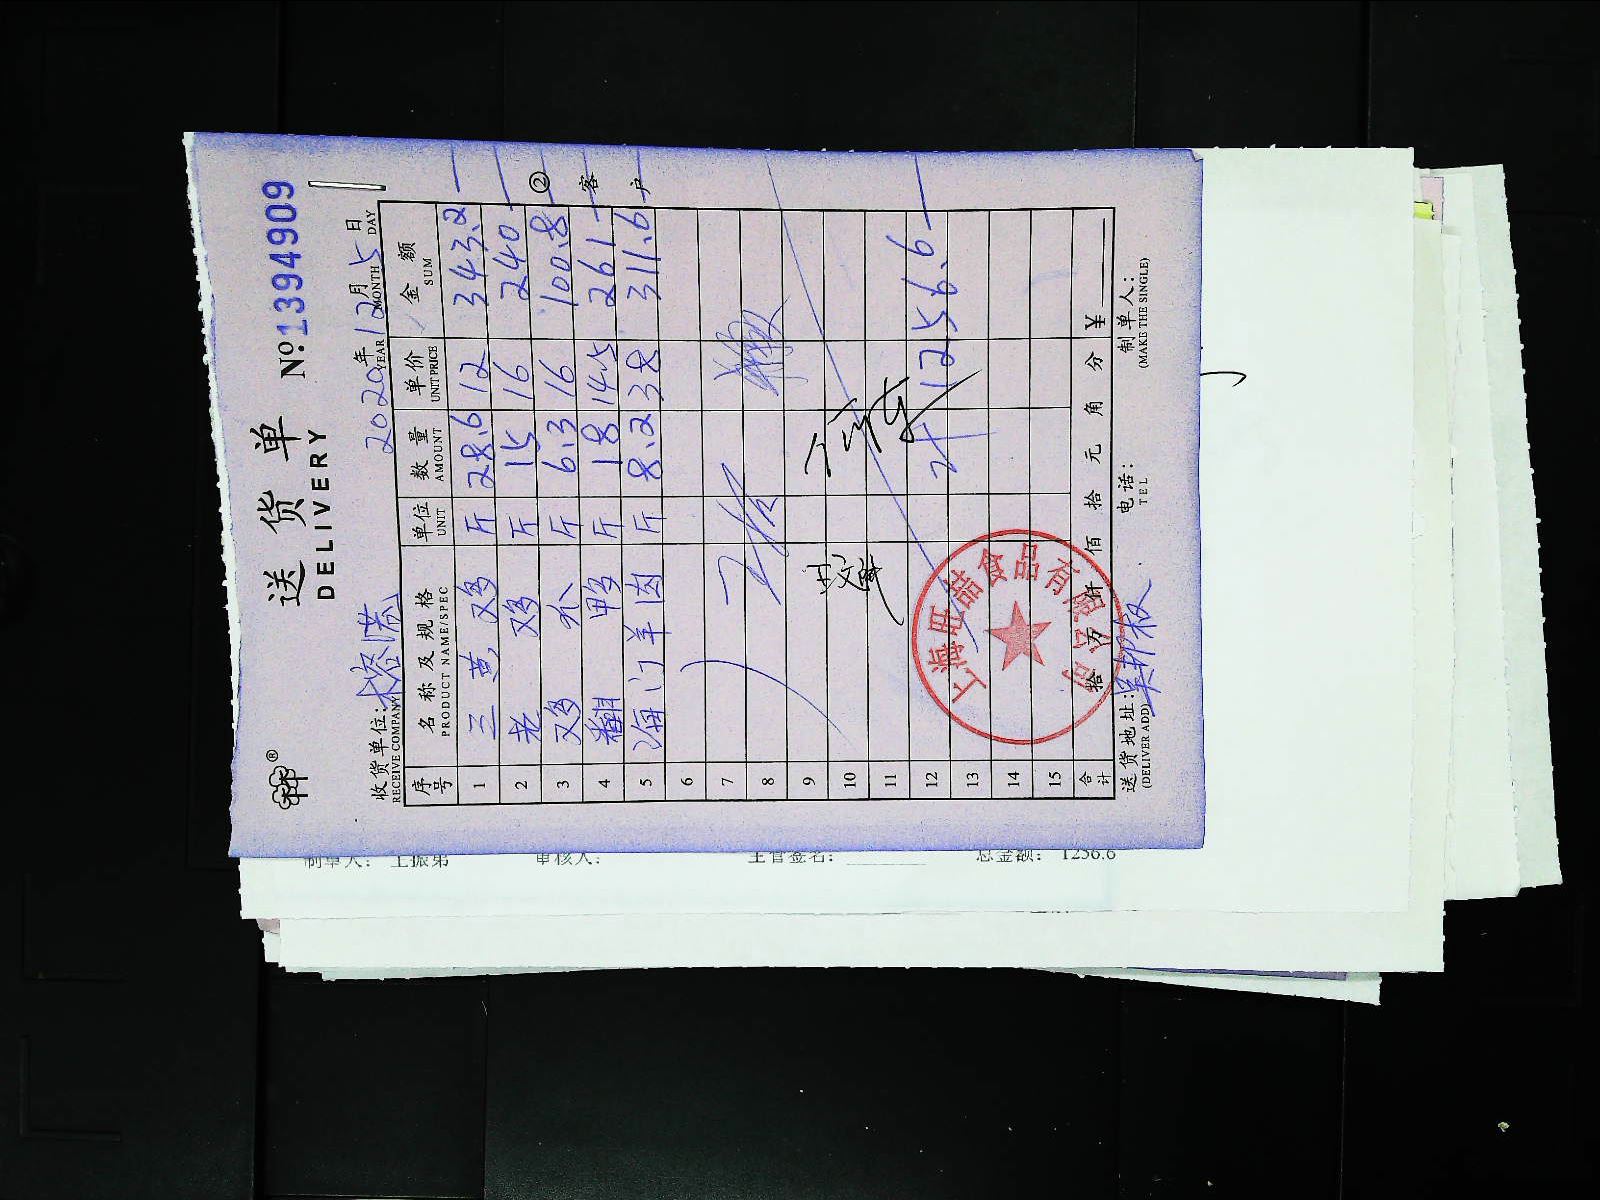 送货单
DELIVERY
№:1394909
收货单位:
RECEIVE COMPANY
2020年12月5日
YEAR MONTH DAY
序号 名称及规格 单位 数量 单价 金额
PRODUCT NAME/SPEC UNIT AMOUNT UNIT PRICE SUM
1 三黄鸡 斤 28.6 12 343.2
2 老鸡 斤 15 16 240
3 鸡爪 斤 6.3 16 100.8
4 翻鸭 斤 18 14.5 261
5 海门羊肉 斤 8.2 38 311.6
6
7
8
9
10
11
12 1256.6
13
14
15
合计 拾 万 仟 佰 拾 元 角 分 ¥
②客户
上海旺喆食品有限公司
送货地址: 电话: 制单人:
(DELIVER ADD) TEL (MAKE THE SINGLE)
制单人: 王振弟 审核人: 主管签名: 总金额: 1256.6